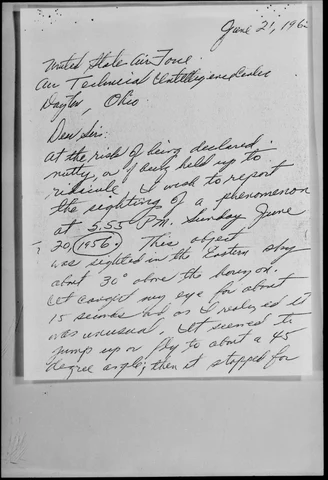 June 21, 196
United States Air Force
Air Technical Intelligence Center
Dayton, Ohio
Dear Sir:
At the risk of being declared
nutty, or of being held up to
ridicule I wish to report
the sighting of a phenomenon
at 5:55 P.M. Sunday June
20, (1956). This object
was sighted in the Eastern sky
about 30° above the horizon.
It caught my eye for about
15 seconds as I realized it
was unusual. It seemed to
jump up or fly to about a 45
degree angle; then it stopped for